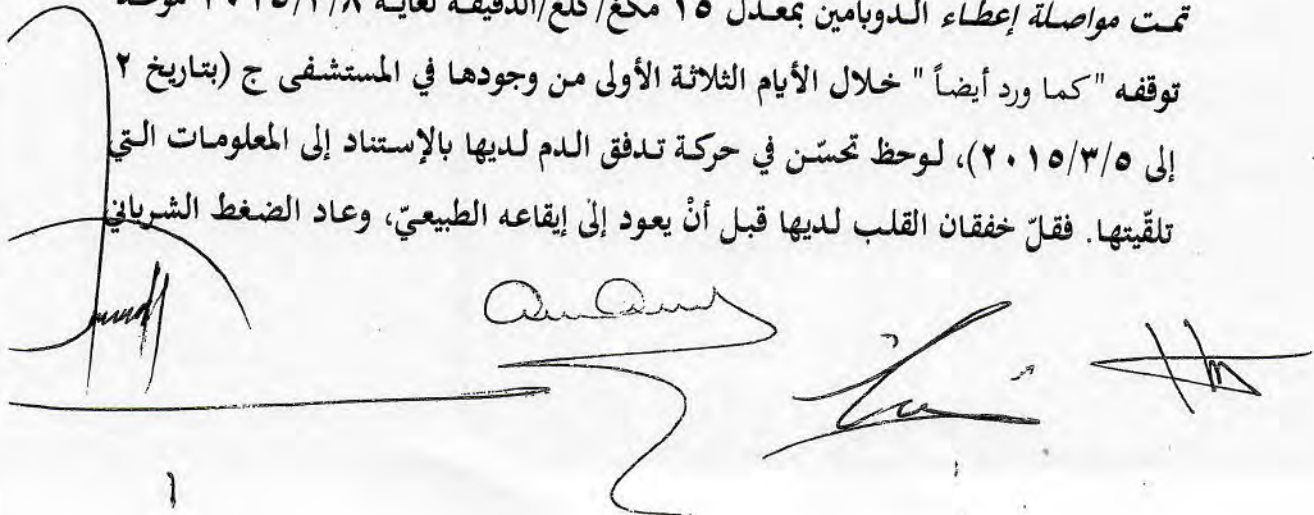 تمت مواصلة إعطاء الدوبامين بمعدل ١٥ مكغ/كلغ/الدقيقة لغاية ٢٠١٥/٣/٨ موعد
توقفه "كما ورد أيضاً" خلال الأيام الثلاثة الأولى من وجودها في المستشفى ج (بتاريخ ٢
إلى ٢٠١٥/٣/٥)، لوحظ تحسّن في حركة تدفق الدم لديها بالإستناد إلى المعلومات التي
تلقّيتها. فقلّ خفقان القلب لديها قبل أنْ يعود إلى إيقاعه الطبيعيّ، وعاد الضغط الشرياني